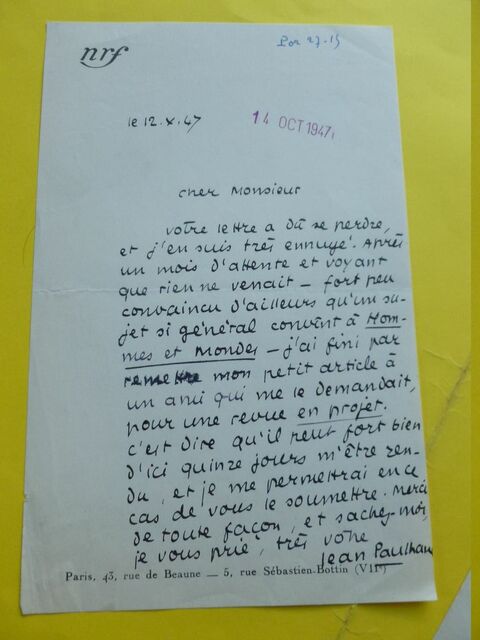 nrf
Por 27-15
le 12.X.47
14 OCT 1947
Cher Monsieur
Votre lettre a dû se perdre,
et j'en suis très ennuyé. Après
un mois d'attente et voyant
que rien ne venait — fort peu
convaincu d'ailleurs qu'un su-
jet si général convînt à Hom-
mes et Mondes — j'ai fini par
remettre mon petit article à
un ami qui me le demandait,
pour une revue en projet.
C'est dire qu'il peut fort bien
d'ici quinze jours m'être ren-
du, et je me permettrai en ce
cas de vous le soumettre. Merci
de toute façon, et sachez-moi,
je vous prie, très vôtre
Jean Paulhan
Paris, 43, rue de Beaune — 5, rue Sébastien-Bottin (VIIe)